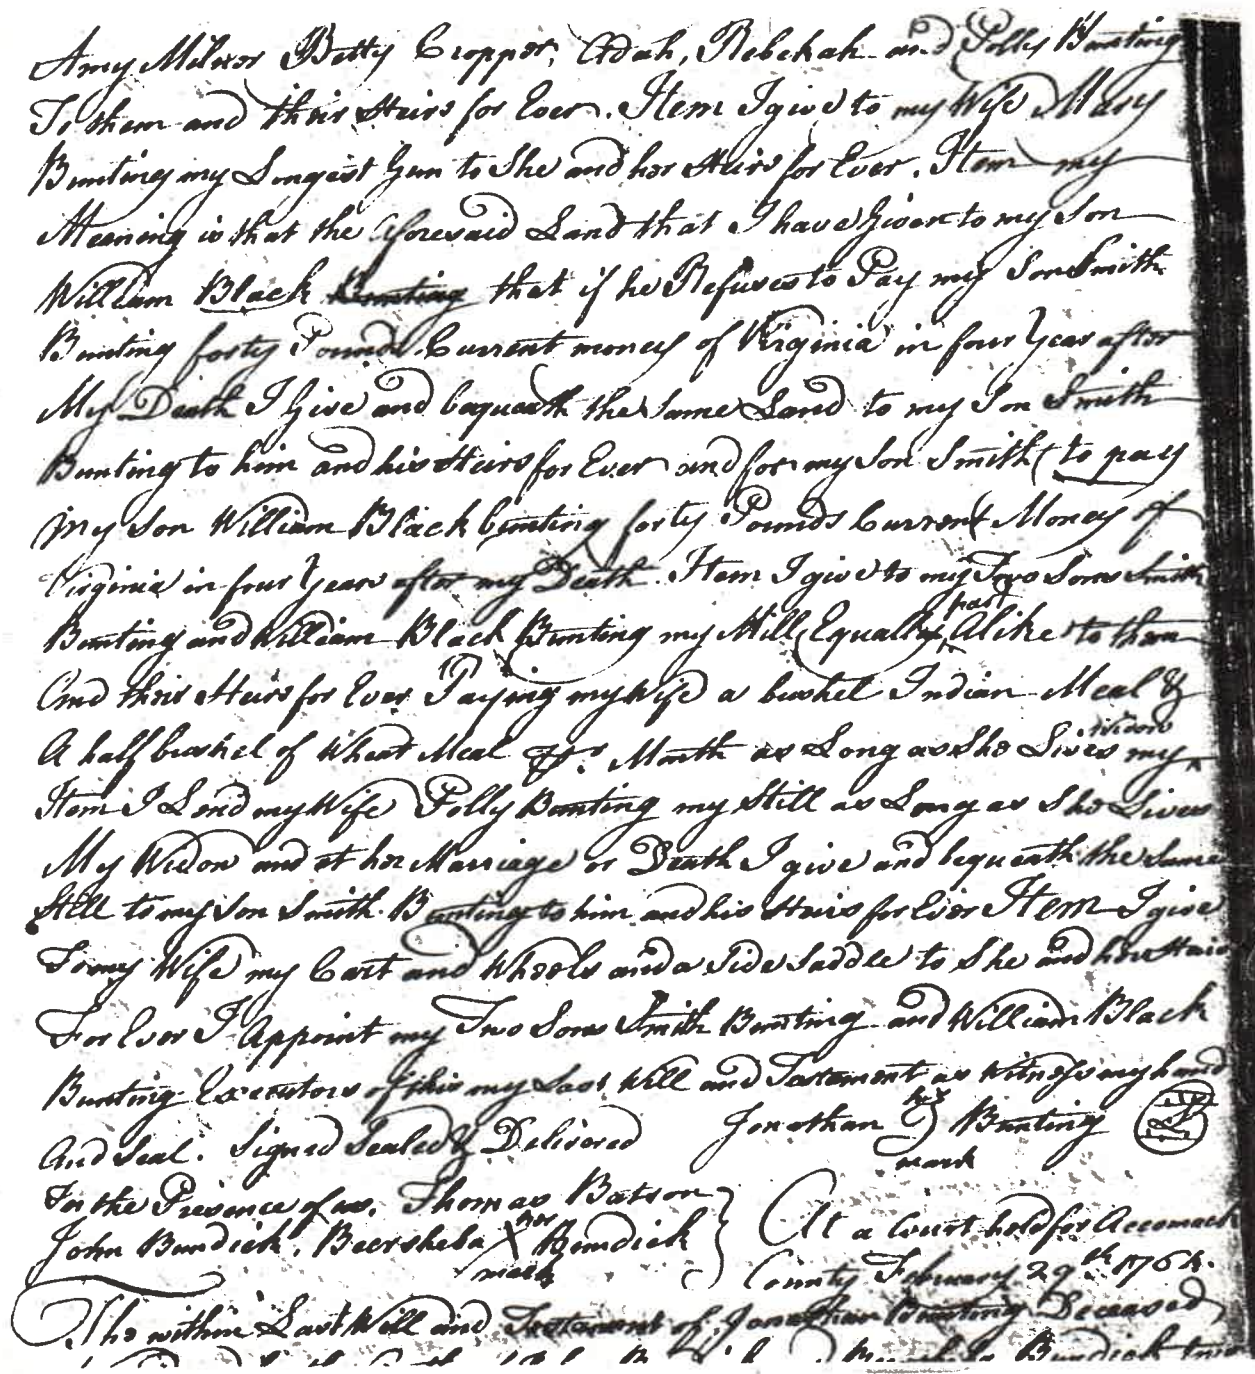 Amy Milner Betty Cropper, Adah, Rebekah and Polly Bunting
To them and their Heirs for Ever. Item I give to my Wife Mary
Bunting my Longest Gun to She and her Heirs for Ever. Item my
Meaning is that the Aforesaid Land that I have Given to my Son
William Black Bunting that if he Refuses to Pay my Son Smith
Bunting forty Pounds Current money of Virginia in four Year after
My Death I Give and bequeath the same Land to my Son Smith
Bunting to him and his Heirs for Ever and for my Son Smith to pay
my Son William Black bunting forty Pounds Current Money of
Virginia in four Year after my Death. Item I give to my Two Sons Smith
Bunting and William Black Bunting my Mill Equally part Alike to them
And their Heirs for Ever Paying my Wife a bushel Indian Meal &
A half bushel of Wheat Meal pr. Month as Long as She Lives my widow
Item I Lend my Wife Polly Bunting my Still as Long as She Lives
My Widow and at her Marriage or Death I give and bequeath the same
Still to my Son Smith Bunting to him and his Heirs for Ever Item I give
To my Wife my Cart and Wheels and a Side Saddle to She and her Heirs
For Ever I Appoint my Two Sons Smith Bunting and William Black
Bunting Executors of this my Last Will and Testament as Witness my hand
And Seal. Signed Sealed & Delivered Jonathan his mark Bunting
In the Presence of us. Thomas Batson
John Bundick, Beersheba her X mark Bundick
At a Court held for Accomack
County February 29th 1764.
The within Last Will and Testament of Jonathan Bunting Deceased